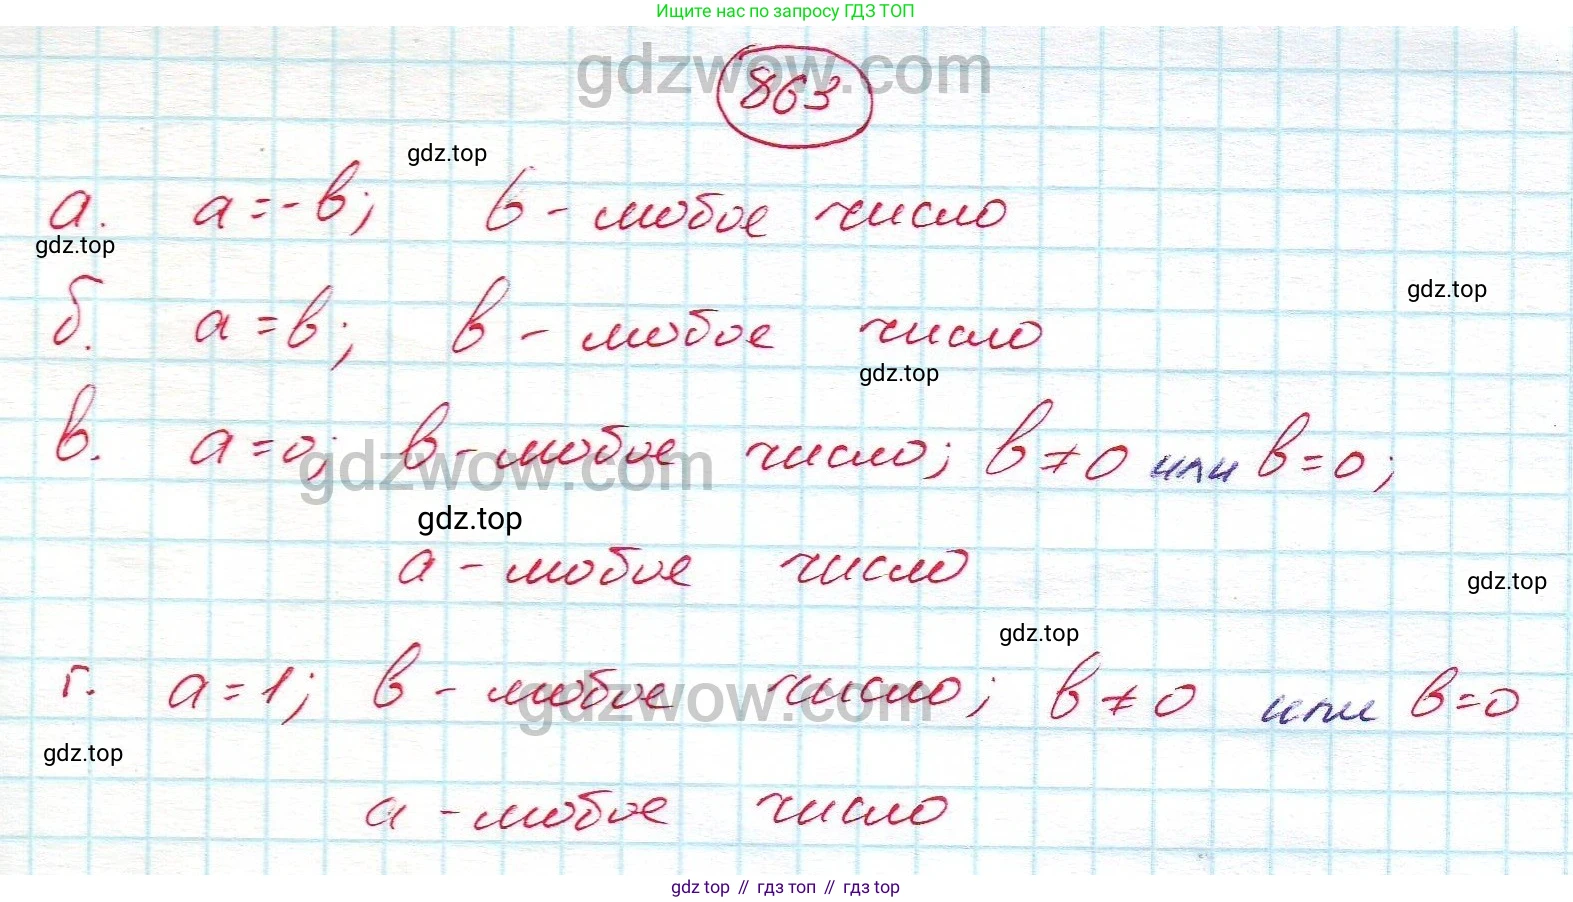 Ищите нас по запросу ГДЗ ТОП
gdzwow.com
863
gdz.top
а. a = -в; в - любое число
gdz.top
gdz.top
б. a = в; в - любое число
gdz.top
в. a = 0; в - любое число; в ≠ 0 или в = 0;
gdzwow.com
gdz.top
а - любое число
gdz.top
gdz.top
г. a = 1; в - любое число; в ≠ 0 или в = 0
gdzwow.com
gdz.top
а - любое число
gdz top // гдз топ // гдз top